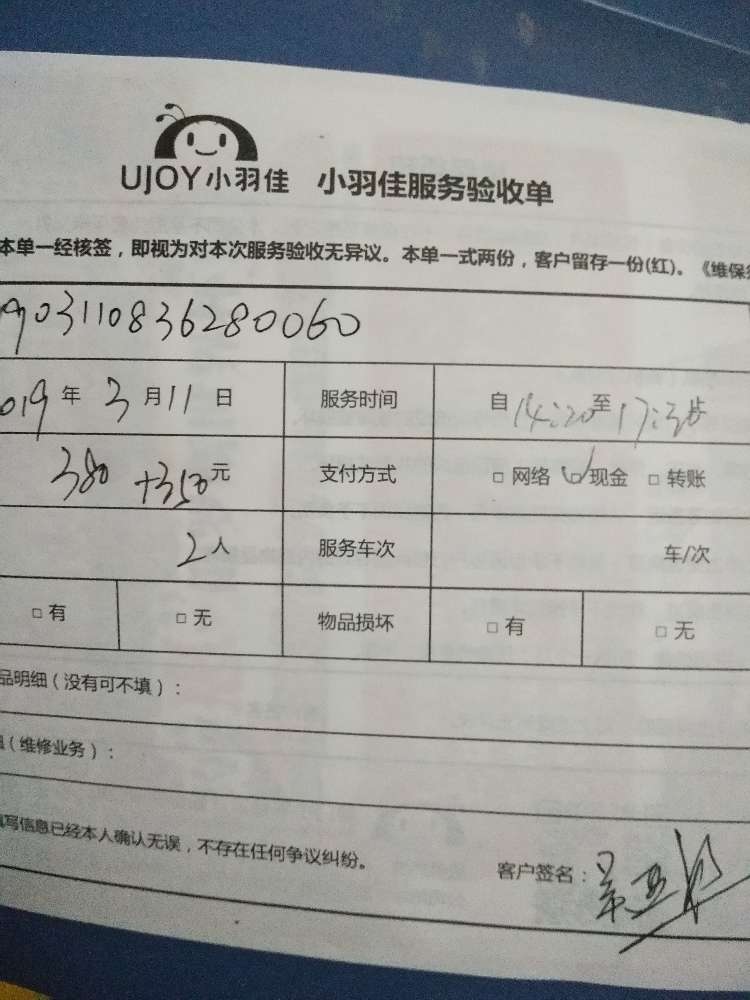 UJOY小羽佳 小羽佳服务验收单
本单一经核签，即视为对本次服务验收无异议。本单一式两份，客户留存一份(红)。《维保
903110836280060
019年3月11日 服务时间 自14:20至17:3
380+350元 支付方式 □网络 □现金 □转账
2人 服务车次 车/次
□有 □无 物品损坏 □有 □无
品明细（没有可不填）：
（维修业务）：
填写信息已经本人确认无误，不存在任何争议纠纷。
客户签名：